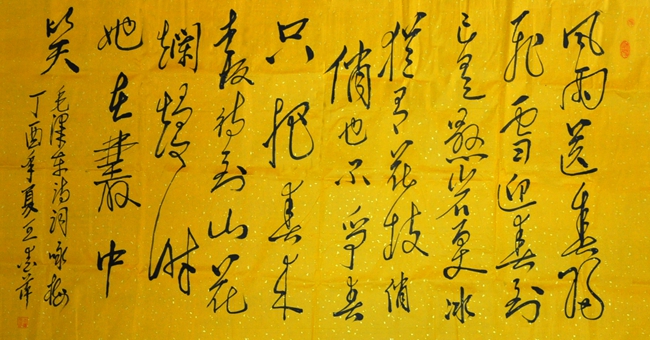 风雨送春归
飞雪迎春到
已是悬崖百丈冰
犹有花枝俏
俏也不争春
只把春来
报待到山花
烂熳时
她在丛中
笑
毛泽东诗词咏梅
丁酉年夏王